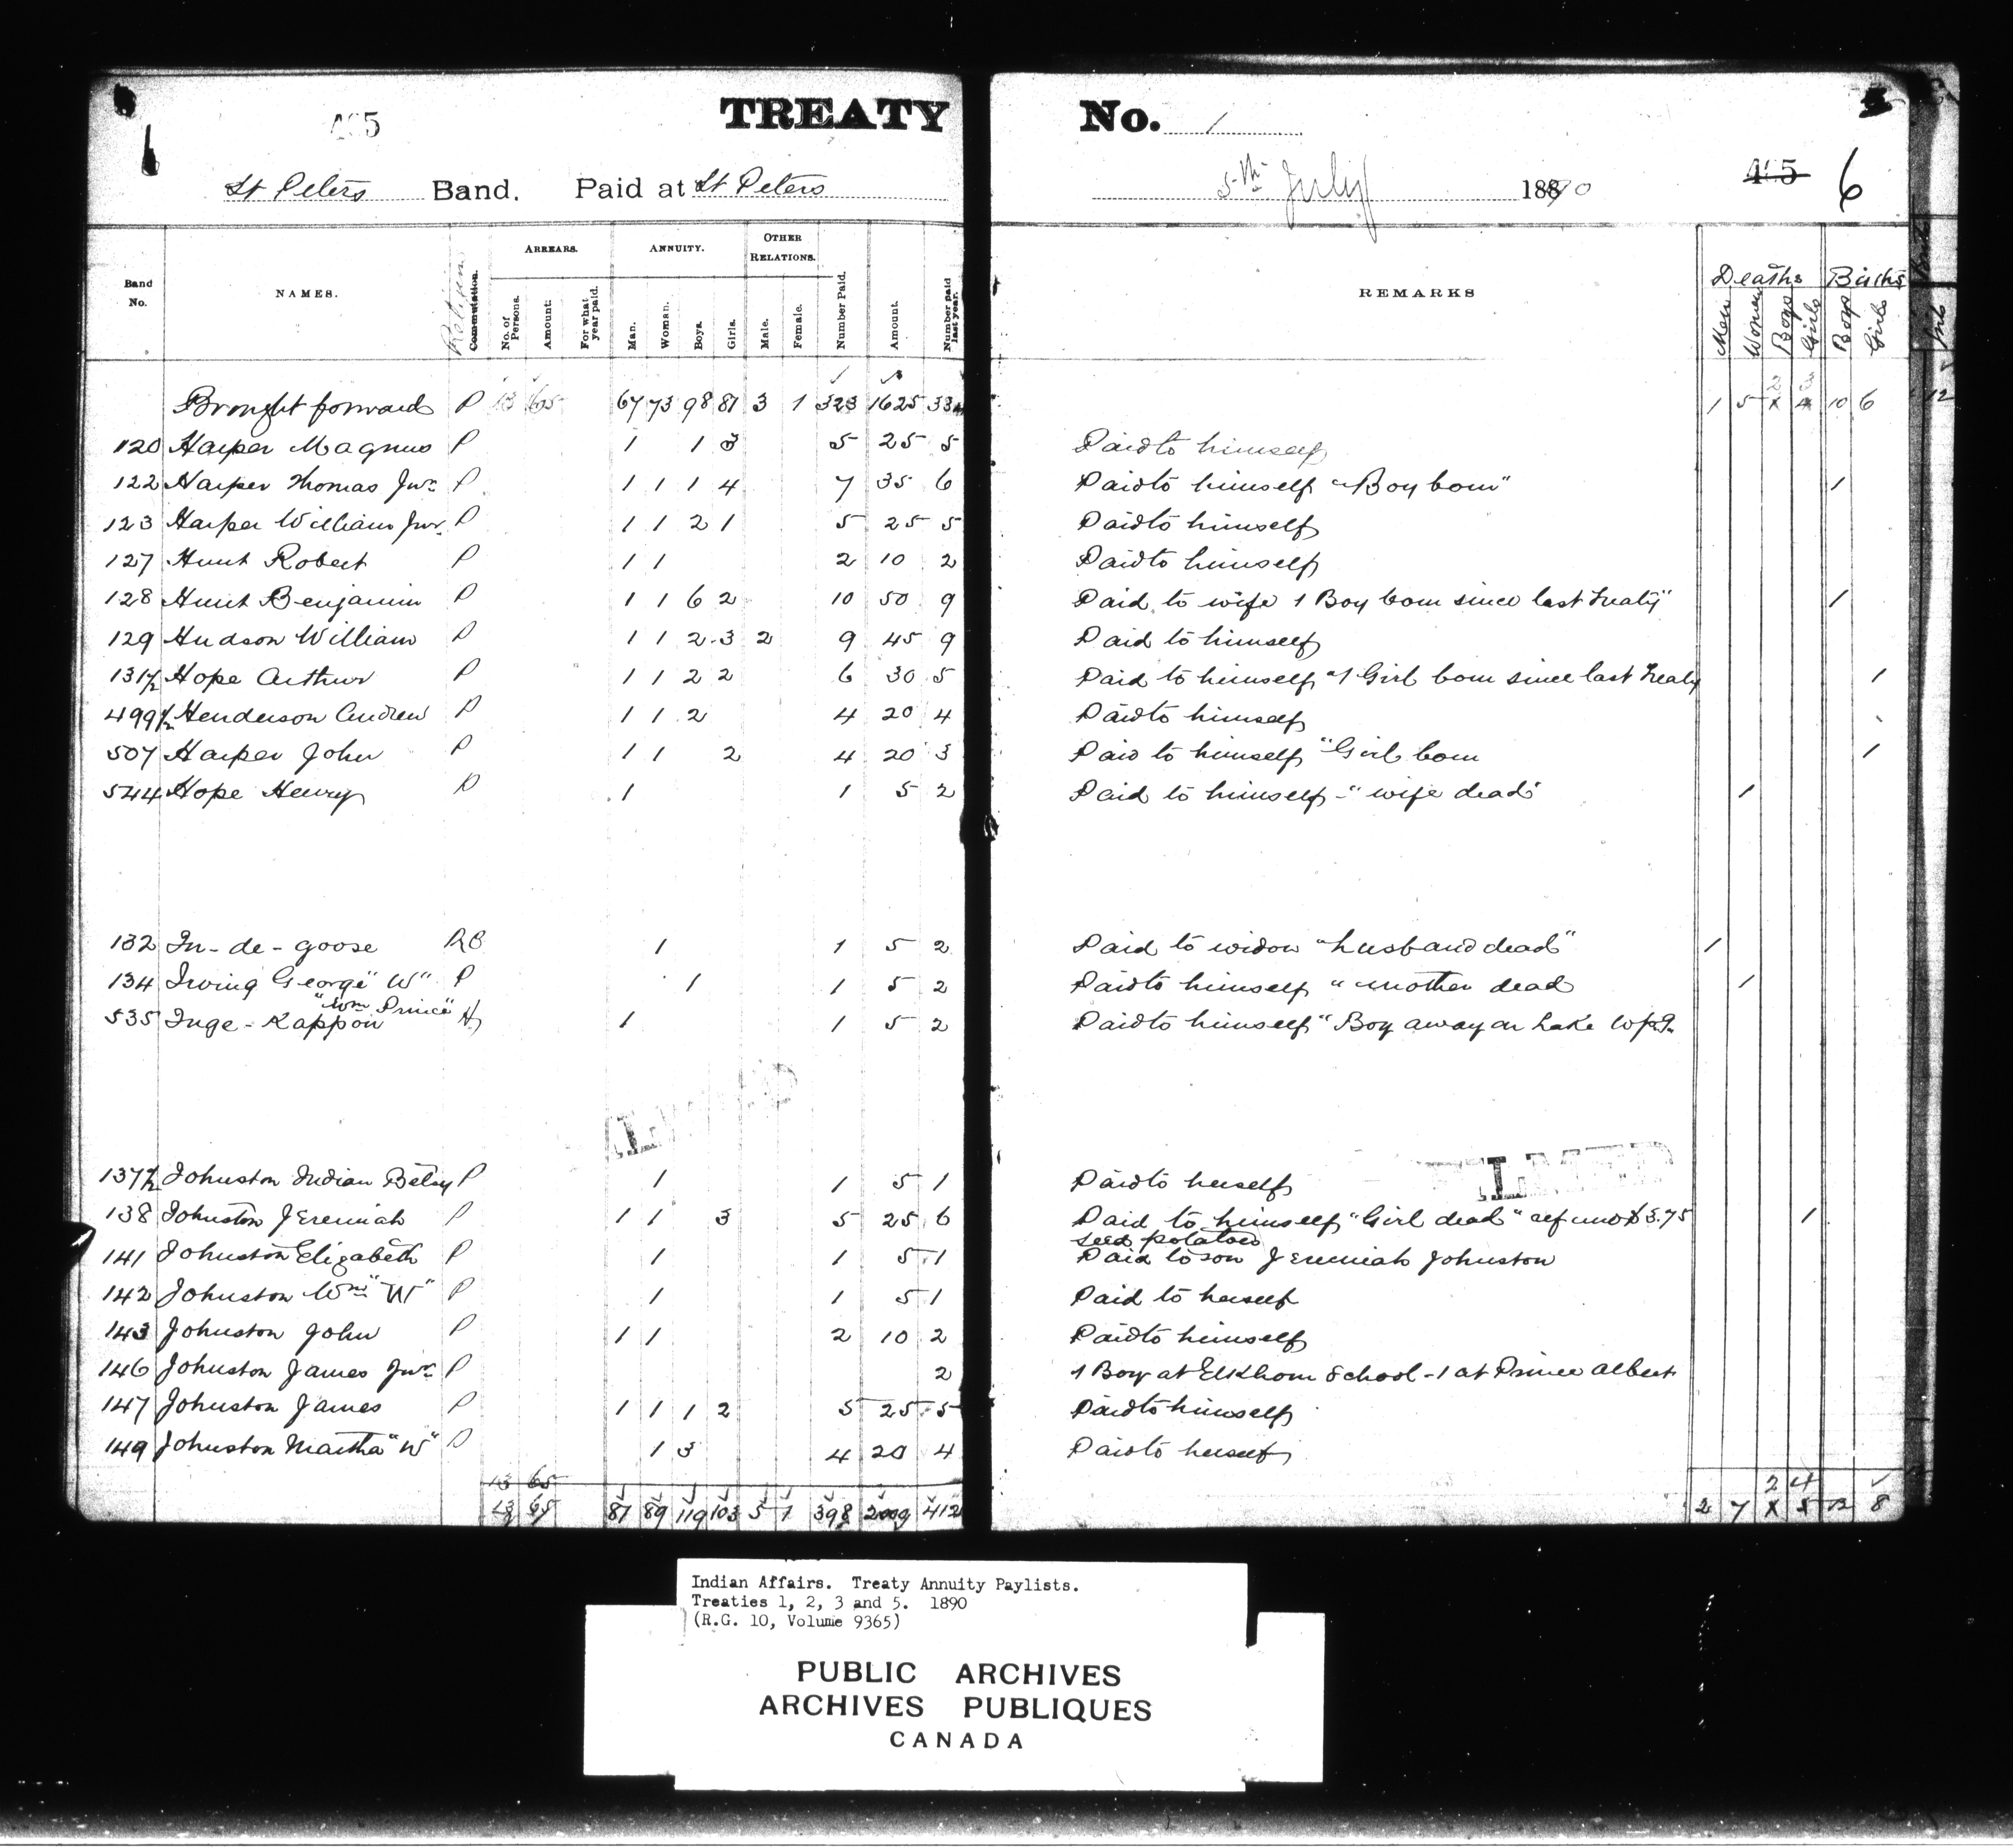 TREATY No. 1
St Peters Band. Paid at St Peters 5th July 1890 6
Band No. NAMES. Religion Commutation. ARREARS. No. of Persons. Amount. For what year paid. ANNUITY. Man. Woman. Boys. Girls. OTHER RELATIONS. Male. Female. Number Paid. Amount. Number paid last year. REMARKS Deaths Men Women Boys Girls Births Boys Girls
Brought forward P 13 65 67 73 98 81 3 1 323 1625 1 5 10 6 12
120 Harper Magnus P 1 1 3 5 25 5 Paid to himself
122 Harper Thomas Junr P 1 1 1 4 7 35 6 Paid to himself "Boy born" 1
123 Harper William Junr P 1 1 2 1 5 25 5 Paid to himself
127 Hunt Robert P 1 1 2 10 2 Paid to himself
128 Hunt Benjamin P 1 1 6 2 10 50 9 Paid to wife 1 Boy born since last treaty" 1
129 Hudson William P 1 1 2 3 2 9 45 9 Paid to himself
131½ Hope Arthur P 1 1 2 2 6 30 5 Paid to himself "1 Girl born since last treaty 1
499½ Henderson Andrew P 1 1 2 4 20 4 Paid to himself
507 Harper John P 1 1 2 4 20 3 Paid to himself "Girl born 1
544 Hope Henry P 1 1 5 2 Paid to himself - "wife dead" 1
132 In-de-goose RC 1 1 5 2 Paid to widow "husband dead" 1
134 Irving George "W" P 1 1 5 2 Paid to himself "mother dead 1
"Wm Prince"
535 Inge-Kappoii H 1 1 5 2 Paid to himself "Boy away on Lake Wpg.
137½ Johnston Indian Betsy P 1 1 5 1 Paid to herself
138 Johnston Jeremiah P 1 1 3 5 25 6 Paid to himself "Girl dead" refund $3.75 1
seed potatoes
141 Johnston Elizabeth P 1 1 5 1 Paid to son Jeremiah Johnston
142 Johnston Wm "W" P 1 1 5 1 Paid to herself
143 Johnston John P 1 1 2 10 2 Paid to himself
146 Johnston James Junr P 2 1 Boy at Elkhorn School - 1 at Prince Albert
147 Johnston James P 1 1 1 2 5 25 5 Paid to himself
149 Johnston Martha "W" P 1 3 4 20 4 Paid to herself
13 65 2 4
13 65 81 89 119 103 5 1 398 2000 412 2 7 5 12 8
Indian Affairs. Treaty Annuity Paylists.
Treaties 1, 2, 3 and 5. 1890
(R.G. 10, Volume 9365)
PUBLIC ARCHIVES
ARCHIVES PUBLIQUES
CANADA